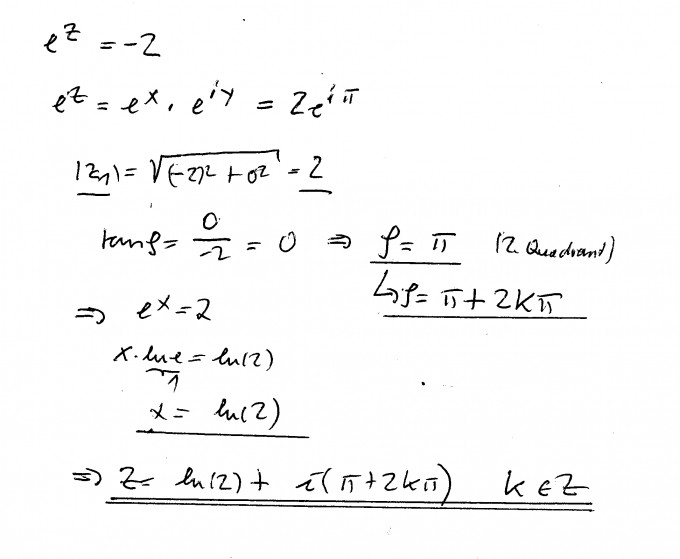 e^z = -2
e^z = e^x · e^{iy} = 2e^{iπ}
|z₁| = √((-2)² + 0²) = 2
tan φ = 0/-2 = 0 ⇒ φ = π (2. Quadrant)
↳ φ = π + 2kπ
⇒ e^x = 2
x · ln e = ln(2)
1
x = ln(2)
⇒ z = ln(2) + i(π + 2kπ) k ∈ Z